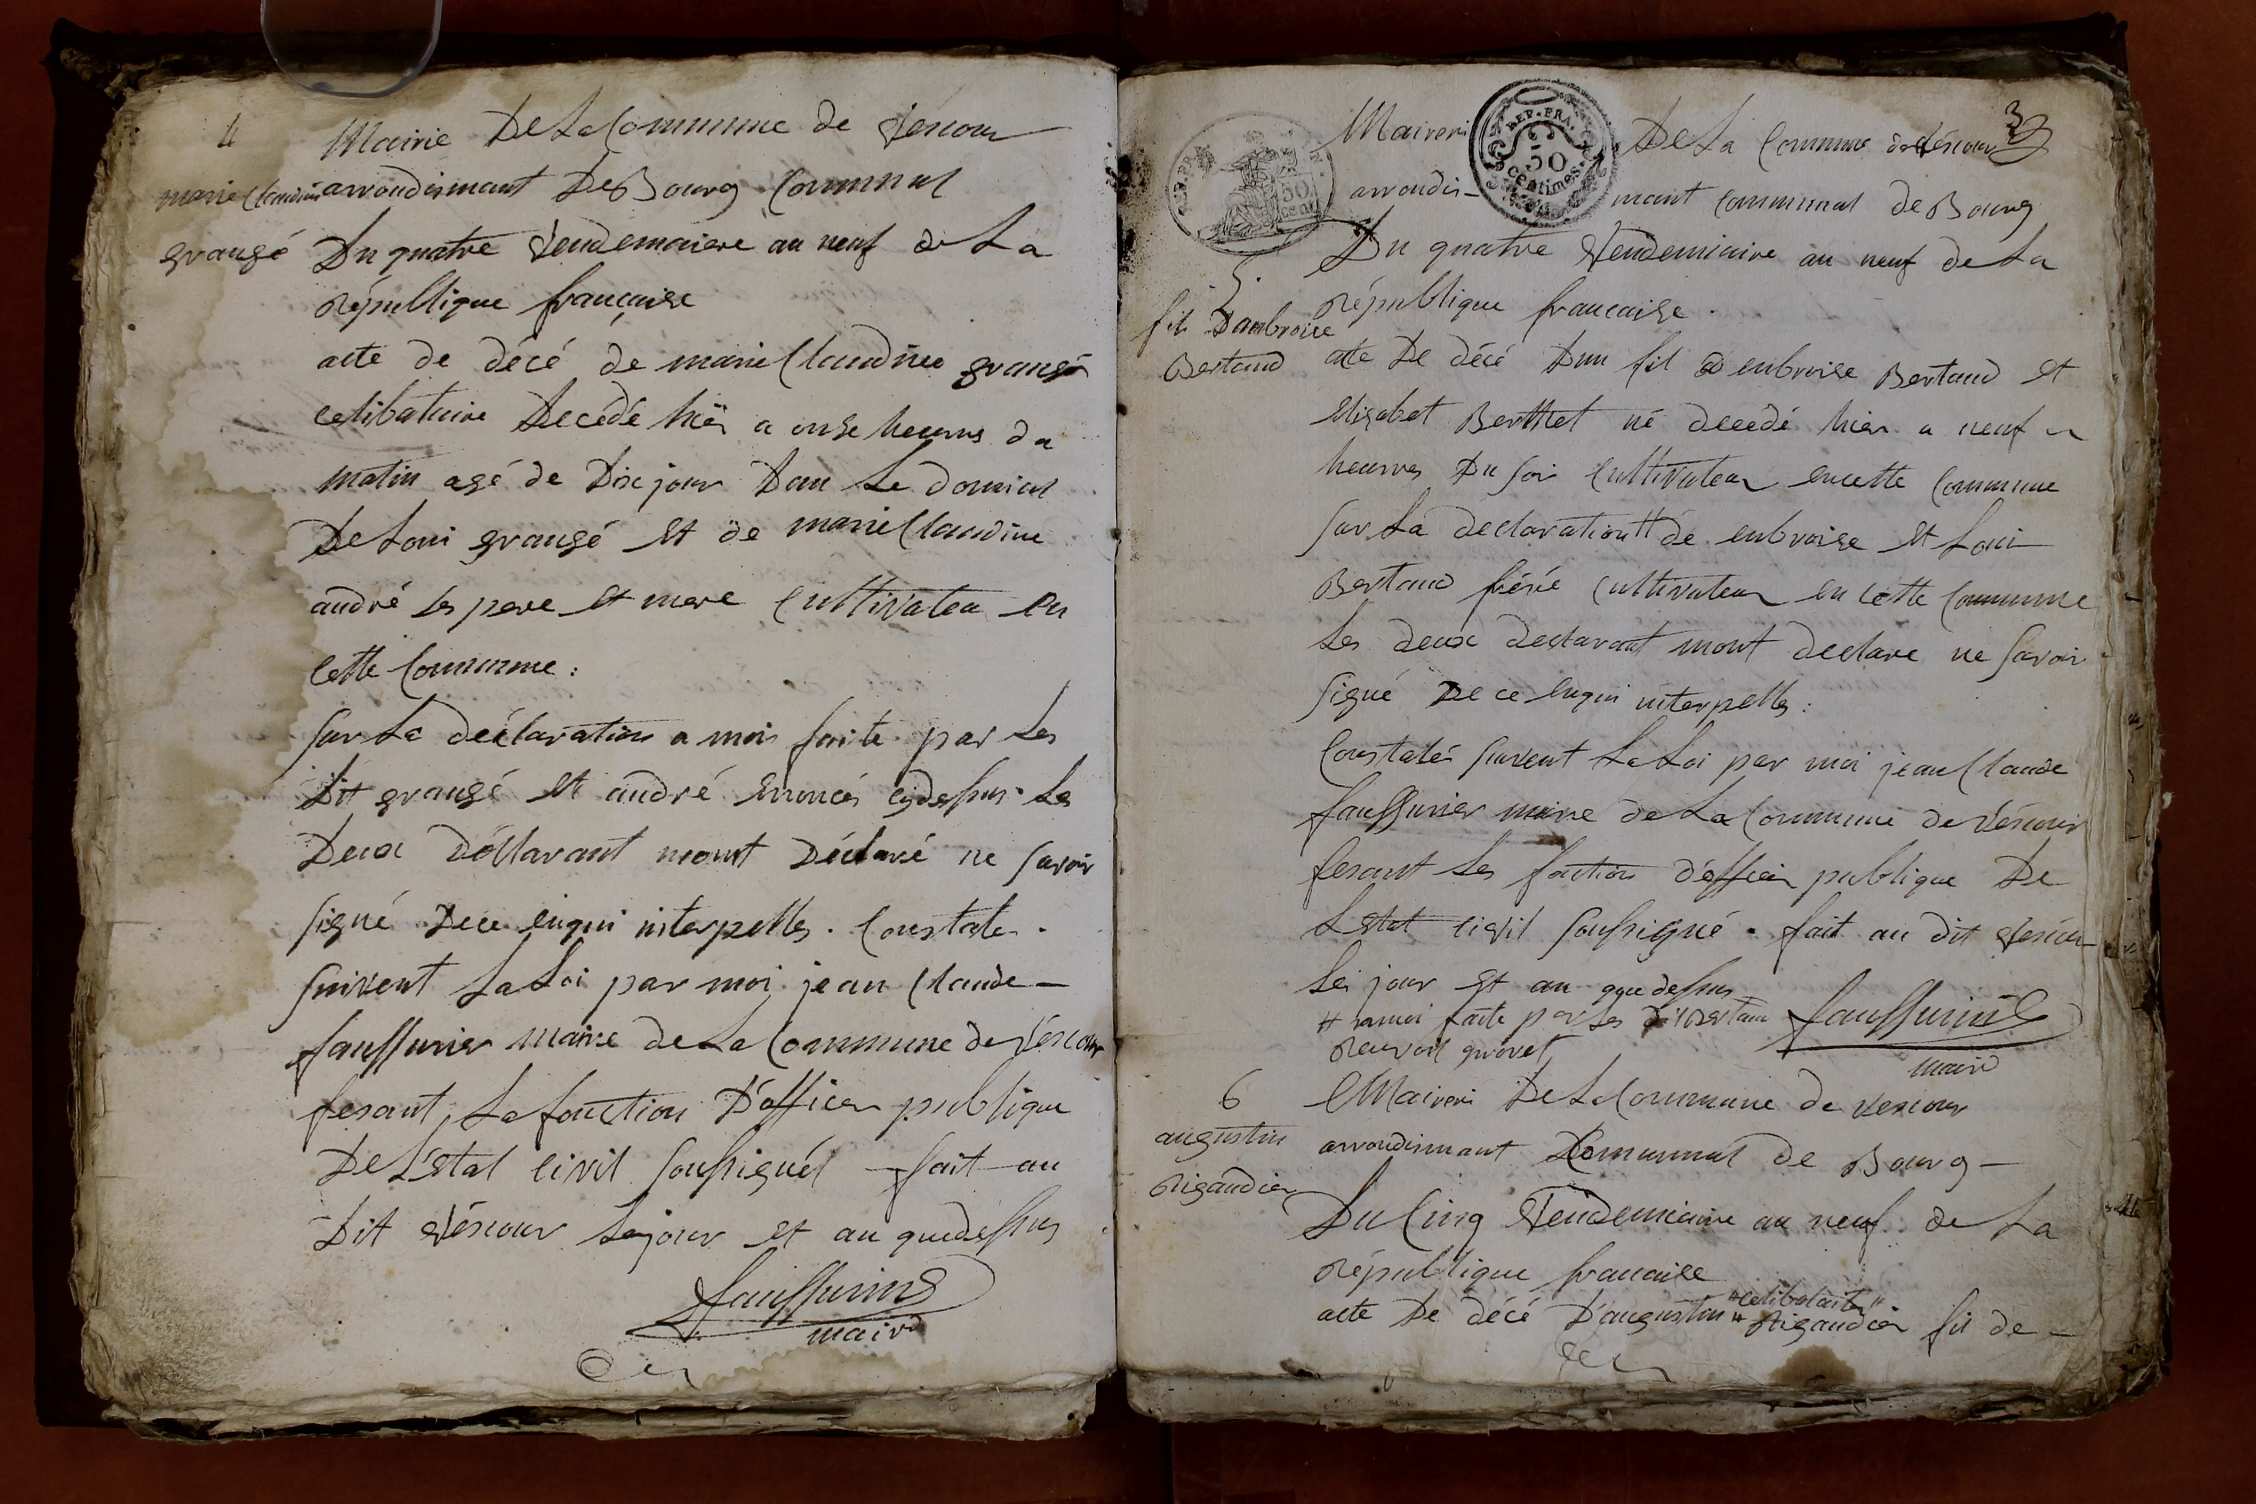 4
marie Claudine
grangé
Mairie De La Commune de Vescour
arrondismant De Bourg Communal
Du quatre Vendemaiere an neuf de La
république française
acte de décé de marie Claudine grangé
celibatuire Decedé hier a onse heurns du
matin agé de Dix jour Dan Le domicil
De Loui grangé Et de marie Claudine
andré ses pere Et mere Cultivateu en
cette Commune :
sur La déclaration a moi faite par Les
Dit grangé Et andré enoncés cydessus. Les
Deux Déclarant mont Déclaré ne savoir
signé Dece enqui interpellés . Constate .
suivent La Loi par moi jean Claude
faussurier maire de La Commune de Vescour
fesant La fonction D'officier publique
De L'Etat Civil soussignél fait au
Dit Vescour Le jour Et an quedessus
faussurier
maire
3
REP. FRA.
50
centimes.
REP. FRA.
50
cent.
Maireri De La Commune de Vescour
arrondis- mant Communal de Bourg
Du quatre Vendemiaire an neuf de La
république francaise .
5.
fil Dambroise
Bertaud
acte De décé Dun fil D enbroise Bertaud Et
Elisabet Berthet né decedé hier a neuf
heurres Du soir Cultivateur encette Commune
sur La declaration # de enbroise Et Loui
Bertaud frére Cultivateur en Cette Commune
Les deux declarant mont declare ne savoir
signé De ce enqui interpellés :
Constaté suivent La Loi par moi jean Claude
faussurier maire de La Commune de Vescour
fesant Les fonction d'officier publique De
L'Etat Civil soussigné . fait au dit Vescour
Le jour Et an que dessus
# amoi faite par Les dit Bertaud
faussurier
maire
6
augustin
Rigaudier
Maireri De La Commune de Vescour
arrondismant Communal de Bourg
Du Cinq Vendemiaire an neuf de La
République francaise
"celibataire"
acte De décé D'augustin # Rigaudier fil de